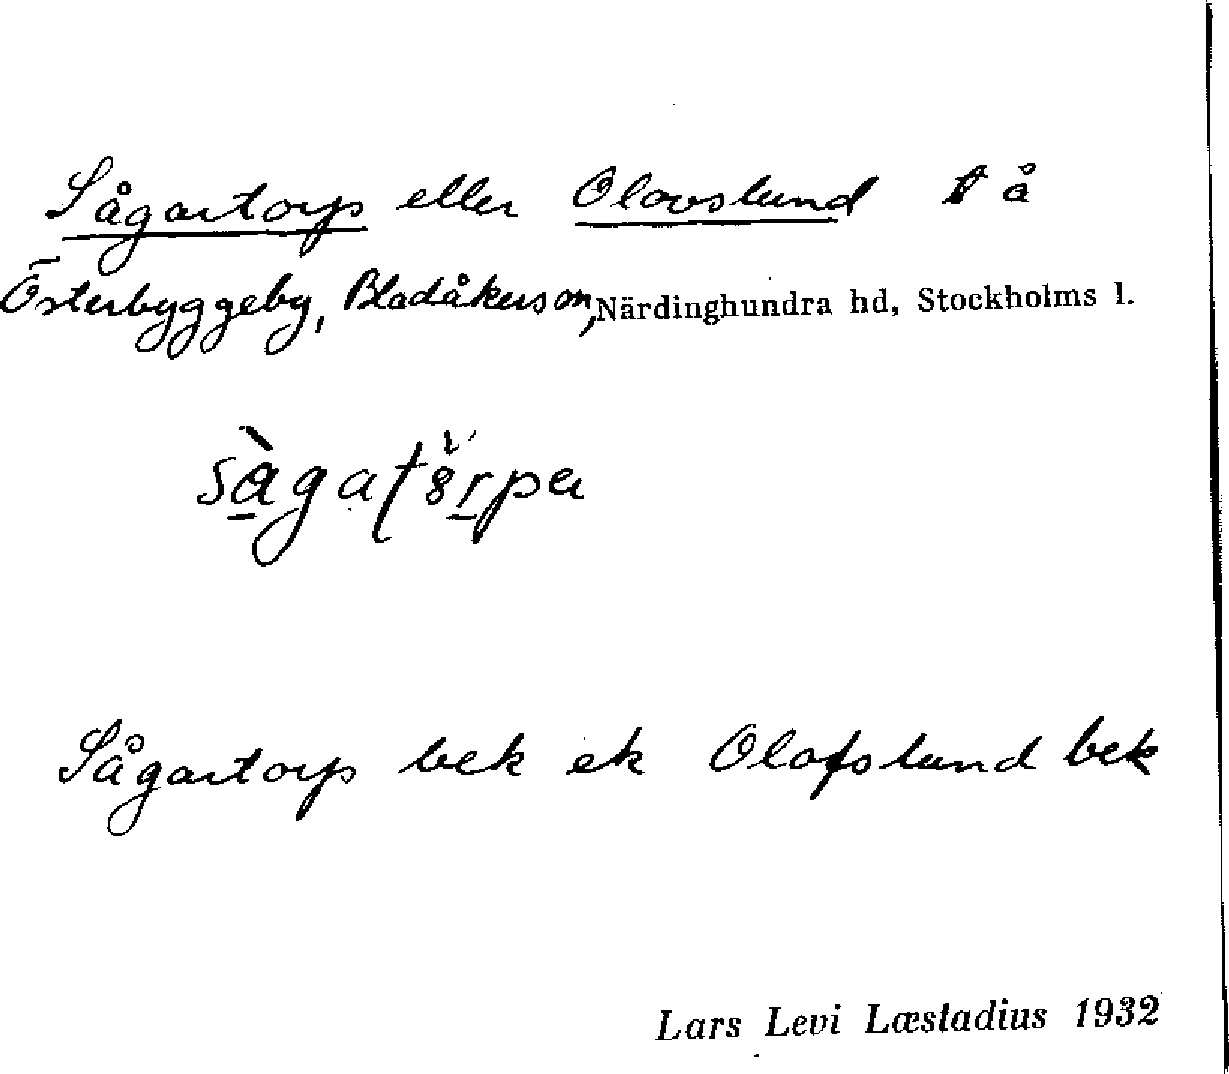 Sågartorp eller Olovslund t å
Österbyggeby, Bladåkers sn, Närdinghundra hd, Stockholms l.
Sågartorp bek ek Olofslund bek
Lars Levi Læstadius 1932